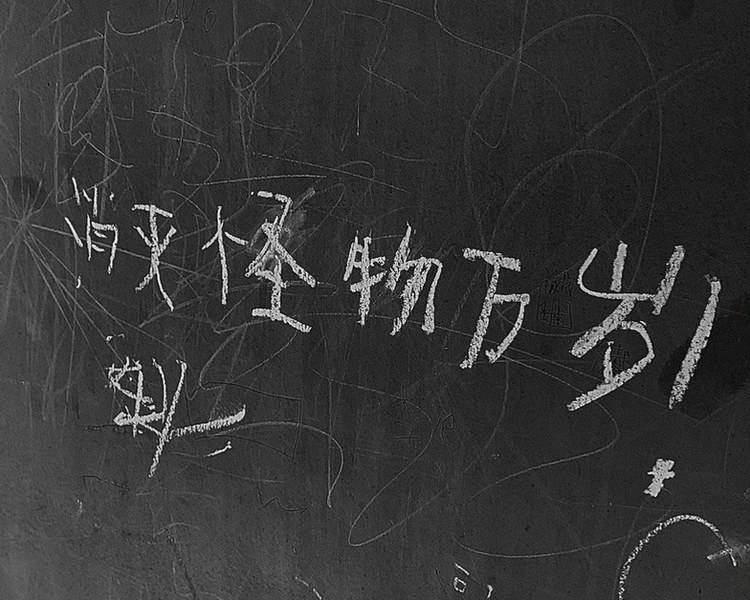 消灭怪物万岁！